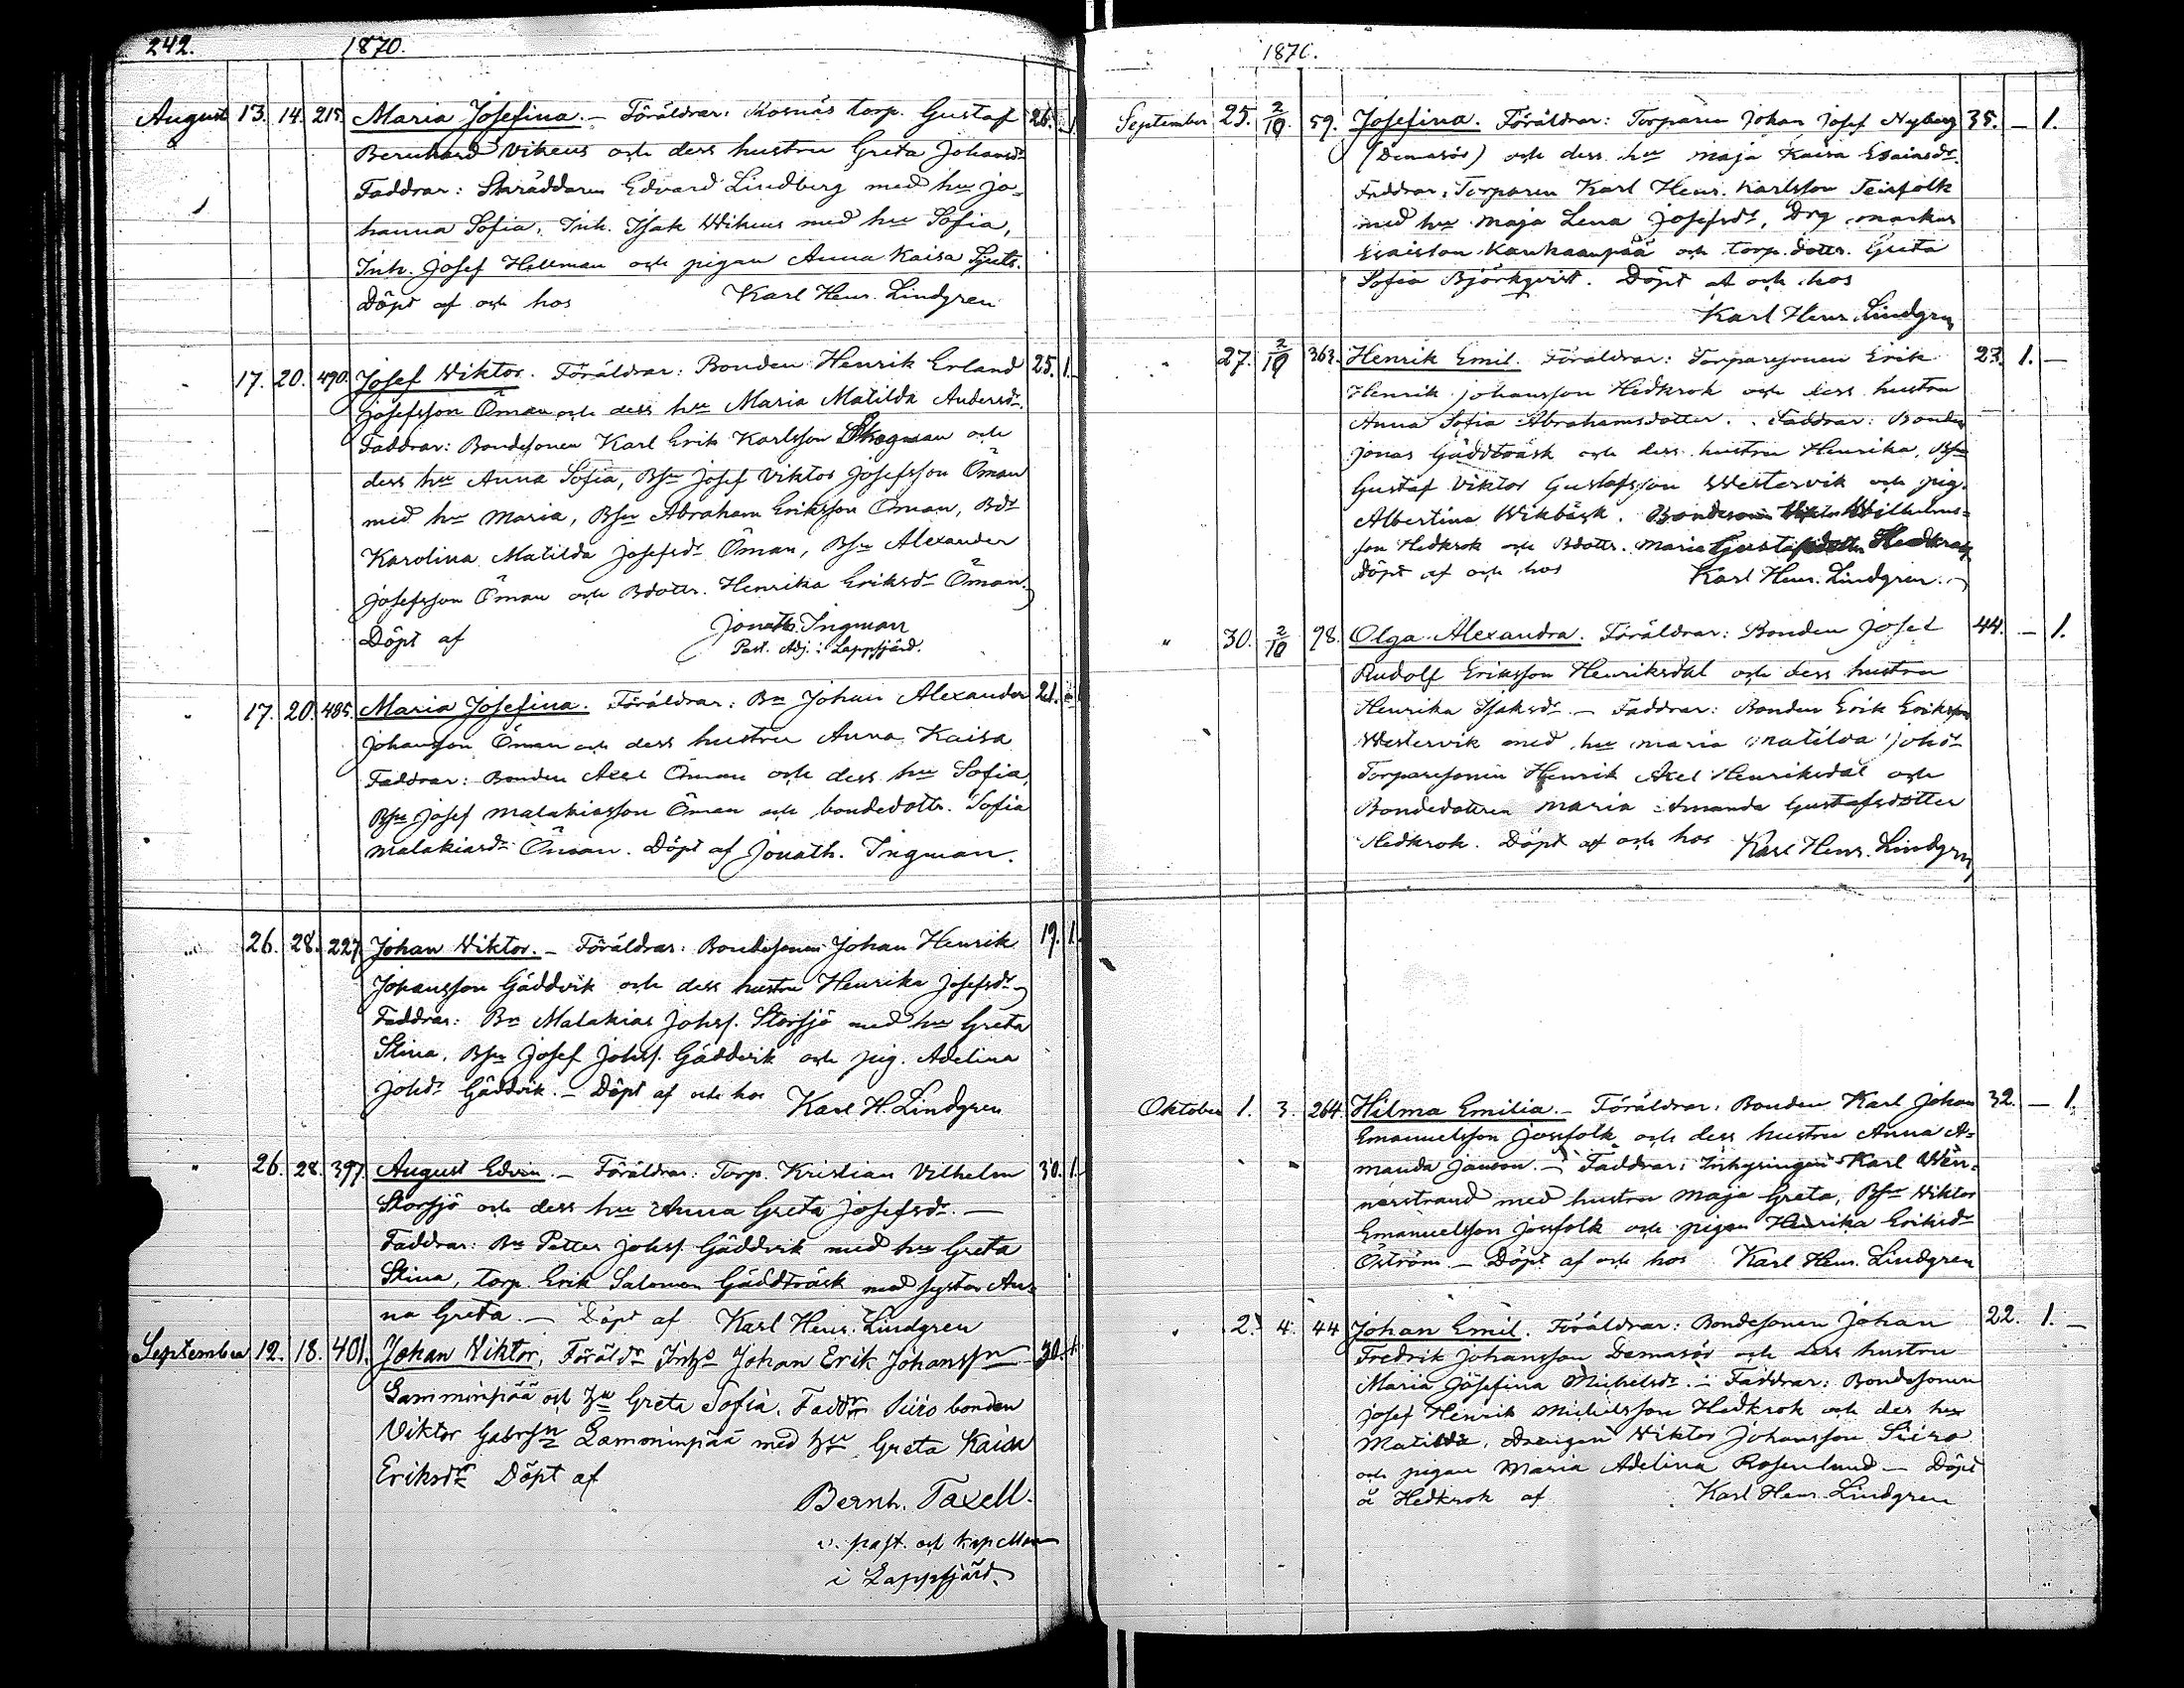 242. 1870.
August 13. 14. 215. Maria Josefina. – Föräldrar: Mosnäs torp. Gustaf 26.
Bernhard Vikeus och dess hustru Greta Johansdr
Faddrar: Skräddaren Edvard Lindberg med hu Jo-
hanna Sofia, Inh. Isak Wikeus med hu Sofia,
Inh. Josef Hellman och pigan Anna Kaisa
Döpt af och hos Karl Henr. Lindgren
17. 20. 490. Josef Wiktor. Föräldrar: Bonden Henrik Erland 25. 1.
Josefsson Öman och dess hu Maria Matilda Andersdr.
Faddrar: Bondesonen Karl Erik Karlsson Skogman och
dess hu Anna Sofia, Bsn Josef Viktor Josefsson Öman
med hu Maria, Bsn Abraham Eriksson Öman, Bdr
Karolina Matilda Josefsdr Öman, Bsn Alexander
Josefsson Öman och Bdottr. Henrika Eriksdr Öman.
Döpt af Jonath. Ingman
Past. Adj. i Lappfjärd.
17. 20. 485. Maria Josefina. Föräldrar: Bn Johan Alexander 21.
Johansson Öman och dess hustru Anna Kaisa
Faddrar: Bonden Axel Öman och dess hu Sofia,
Bsn Josef Malakiasson Öman och bondedottr. Sofia
Malakiasdr Öman. Döpt af Jonath. Ingman.
26. 28. 227. Johan Wiktor. – Föräldrar: Bondesonen Johan Henrik 19. 1.
Johansson Gäddvik och dess hustru Henrika Josefsdr
Faddrar: Bn Malakias Johss. Storsjö med hu Greta
Stina, Bsn Josef Johss. Gäddvik och pig. Adelina
Johdr Gäddvik. – Döpt af och hos Karl H. Lindgren
" 26. 28. 397. August Edvin. – Föräldrar: Torp. Kristian Vilhelm 30. 1.
Storsjö och dess hu Anna Greta Josefsdr. –
Faddrar: Bn Petter Johss. Gäddvik med hu Greta
Stina, torp. Erik Salomon Gäddträsk med syster An-
na Greta. – Döpt af Karl Henr. Lindgren
September 12. 18. 401. Johan Viktor, Föräldr Inhs Johan Erik Johanssn 30. 1.
Lamminpää och hu Greta Sofia. Faddr Siiro bonden
Viktor Gabrsn Lamminpää med hu Greta Kaisa
Eriksdr Döpt af
Bernh. Taxell.
v. past. och kapellan
i Lappfjärd.
1870.
September 25. 2/10. 59. Josefina. Föräldrar: Torparen Johan Josef Nyberg 35. – 1.
(Demasör) och dess hu Maja Kaisa Esaiasdr.
Faddrar: Torparen Karl Henr. Karlsson Teirfolk
med hu Maja Lena Josefsdr, Drg Markus
Esaiasson Kankaanpää och torp. dottr. Greta
Sofia Björkqvist. Döpt af och hos
Karl Henr. Lindgren
" 27. 2/10 363. Henrik Emil. Föräldrar: Torparesonen Erik 23. 1. –
Henrik Johansson Hedkrok och dess hustru
Anna Sofia Abrahamsdotter. Faddrar: Bonden
Jonas Gäddträsk och dess hustru Henrika, Bsn
Gustaf Viktor Gustafsson Westervik och pig.
Albertina Wikbäck. Bondesonen Wilhelms-
son Hedkrok och Bdottr. Maria Gustafsdotter Hedkrok
Döpt af och hos Karl Henr. Lindgren.
" 30. 2/10 98. Olga Alexandra. Föräldrar: Bonden Josef 44. – 1.
Rudolf Eriksson Henriksdal och dess hustru
Henrika Isaksdr. – Faddrar: Bonden Erik Eriksson
Westervik med hu Maria Matilda Johdr
Torparesonen Henrik Axel Henriksdal och
Bondedottren Maria Amanda Gustafsdotter
Hedkrok. Döpt af och hos Karl Henr. Lindgren
Oktober 1. 3. 264. Hilma Emilia. – Föräldrar: Bonden Karl Johan 32. – 1.
Emanuelsson Jossfolk och dess hustru Anna A-
manda Janson. – Faddrar: Inhysingen Karl Wen-
narstrand med hustru Maja Greta, Bsn Wiktor
Emanuelsson Jossfolk och pigan Henrika Eriksdr
Öström – Döpt af och hos Karl Henr. Lindgren
" 2. 4. 44 Johan Emil. Föräldrar: Bondesonen Johan 22. 1. –
Fredrik Johansson Demasör och dess hustru
Maria Josefina Michelsdr. – Faddrar: Bondesonen
Josef Henrik Michelsson Hedkrok och des hu
Matilda, Drengen Wiktor Johansson Siiro
och pigan Maria Adelina Rosenlund – Döpt
å Hedkrok af Karl Henr. Lindgren